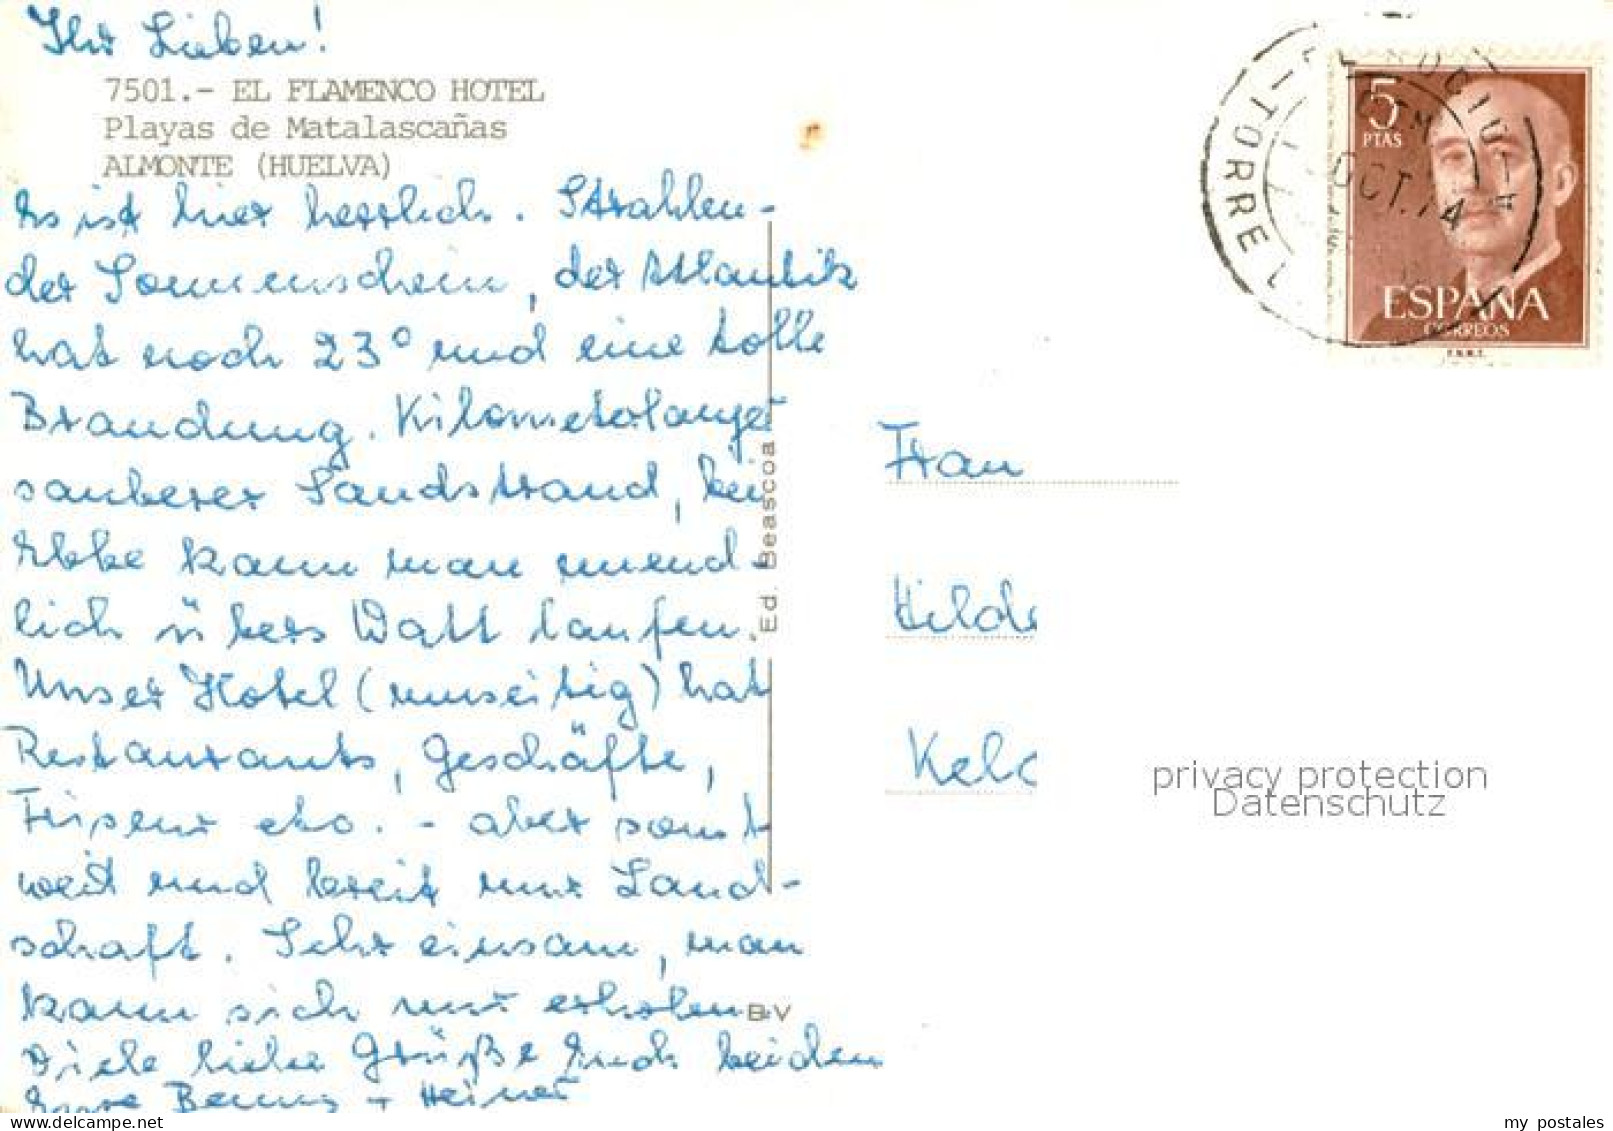 Ihr Lieben!
7501.- EL FLAMENCO HOTEL
Playas de Matalascañas
ALMONTE (HUELVA)
Es ist hier herrlich. Strahlen-
der Sonnenschein, der Atlantik
hat noch 23° und eine tolle
Brandung. Kilometerlanger
sauberer Sandstrand, bei
Ebbe kann man unend-
lich übers Watt laufen.
Unser Hotel (umseitig) hat
Restaurants, Geschäfte,
Friseur etc. - aber sonst
weit und breit nur Land-
schaft. Sehr einsam, man
kann sich nur erholen
Viele liebe Grüße Euch beiden
Eure + Heiner
Ed. Beascoa
B-V
TORRE
OCT. 74
5
PTAS
ESPAÑA
CORREOS
F.N.M.T.
Frau
Hilde
Kelc
privacy protection
Datenschutz
www.delcampe.net
my postales